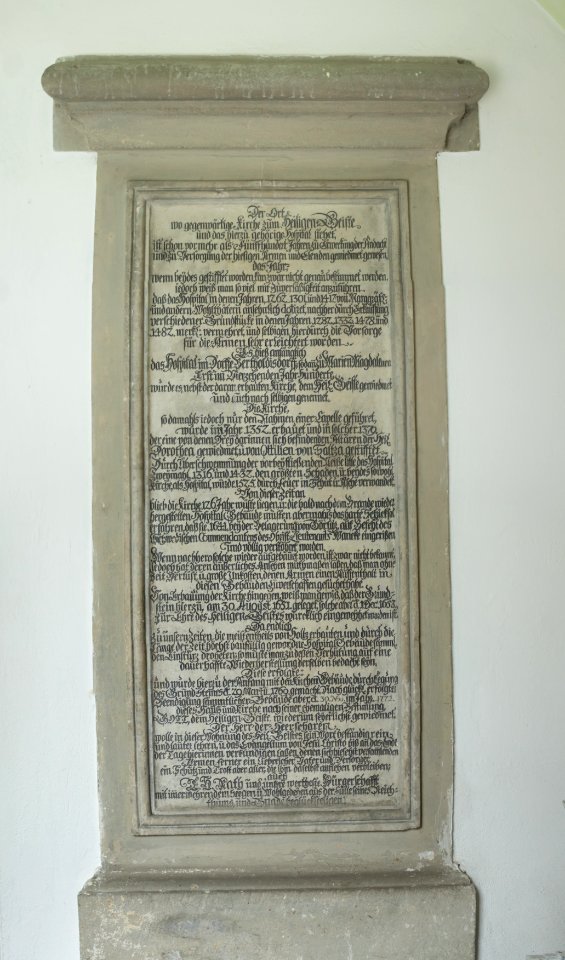 Der Ort
wo gegenwärtige Kirche zum Heiligen Geiste
und das hierzu gehörige Hospital stehet,
ist schon vor mehr als Fünffhundert Jahren zu der Andacht
und zu Versorgung der hiesigen Armen und Elenden gewiedmet gewesen.
das Jahr,
wenn beydes gestifftet worden, kan zwar nicht genau bestimmet werden,
jedoch weiß man so viel mit Zuverläßigkeit anzuführen,
daß das Hospital in denen Jahren, 1262. 1301. und 1417 von
und andern Wohlthätern ansehnlich dotiret, nachher durch
verschiedener Grundstücke in denen Jahren 1287. 1332. 1478 und
1482. vermehret, und selbigen hierdurch die Vorsorge
für die Armen sehr erleichtert worden.
Es hieß anfänglich
das Hospital im Dorffe Bertholdisdorff, zu Marien Magdalenen
Erst im Vierzehenden Jahr Hunderte
wurde es nebst der daran erbauten Kirche, dem Heil. Geiste gewiedmet
und auch nach selbigen genennet.
Die Kirche,
so damahls jedoch nur den Nahmen einer Capelle geführet,
wurde im Jahr 1352. erbauet und in solcher 1370.
der eine von denen darinnen sich befindenden Altären der Heil.
Dorothea gewiedmet u. von gestifftet.
Durch Überschwemmung der vorbeyfließenden Neiße litte das Hospital
zweymahl, 1316. und 1432. den grösten Schaden, u. beydes so wohl
Kirche als Hospital, wurde 1525 durch Feuer in Schutt u. Asche verwandelt.
Von dieser Zeit an
blieb die Kirche 126 Jahr wüste liegen u. die bald nach dem Brande wieder
hergestellten Hospital Gebäude musten abermahls das harte Schicksal
erfahren daß sie 1641. bey der Belagerung von Görlitz, auf Befehl des
Schwedischen Commendantens des Obrist Lieutenants Wancke eingerißen
und völlig verwüstet worden.
Wenn nachhero solche wieder aufgebauet worden, ist zwar nicht bekannt,
jedoch hat deren äuserliches Ansehen muthmaßen laßen, daß man ohne
Zeit Verlust u. große Unkosten denen Armen einen Auffenthalt in
diesen Gebäuden zu verschaffen gesuchet habe.
Von Erbauung der Kirche hingegen, weiß man gewiß, daß der Gund-
stein hierzu, am 30. August 1651. geleget, solche aber d. 1. 1653.
zur Ehre des Heiligen Geistes würcklich eingeweyhet worden ist.
Da endlich
zu unsern Zeiten, die meistentheils von Holtz erbauten und durch die
Länge der Zeit höchst baufällig gewordne Hospital Gebäude
den Einsturz droheten, so muste man zu deßen Verhütung auf eine
dauerhaffte Wiederherstellung derselben bedacht seyn.
Diese erfolgte,
und wurde hierzu der Anfang mit den Kirchen Gebäude durch Legung
des Grund Steins d. 20. April 1769 gemacht. Nach glücklich erfolgter
Beendigung sämmtlicher Gebäude aber d. im Jahr 1772.
dieses Hauß und Kirche nach seiner ehemaligen Bestimung,
GOTT, dem Heiligen Geist, wiederum feyerlichst gewiedmet.
Der Herr der Heerscharen,
wolle in dieser Wohnung des Heil. Geistes sein Wort beständig rein
und lauter lehren, u. das Evangelium von Jesu Christo biß an das Ende
der Tage hierinnen verkündigen laßen, denen sich hieselbst versammlenden
Armen, ferner ein Liebreicher Vater und Versorger,
ein Schutz und Trost aber aller, die Ihn daselbst anruffen, verbleiben,
auch
E. E. Rath und unsere wertheste Bürgerschafft,
mit immerwährendem Seegen u. Wohlergehen aus der Fülle seines Reich-
thums und Gnade beglückseeligen.